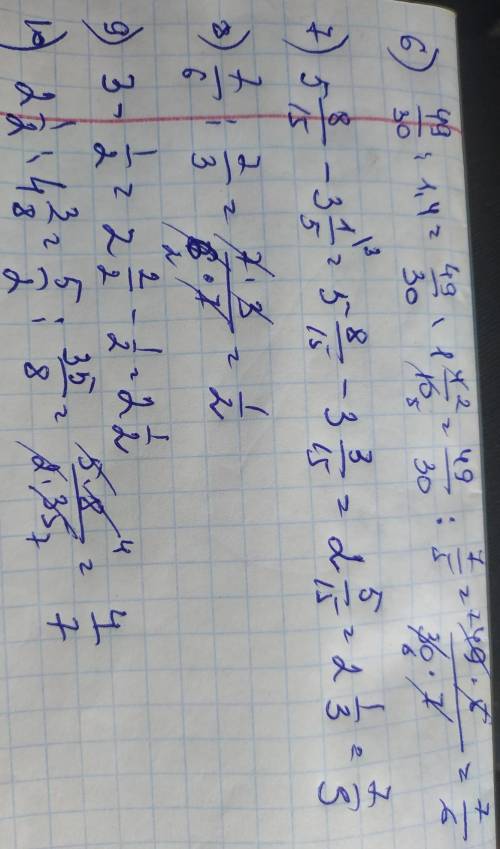 6) 49/30 : 1,4 = 49/30 : 1 4/10 = 49/30 : 7/5 = 49·5/30·7 = 7/6
7) 5 8/15 - 3 1/5 = 5 8/15 - 3 3/15 = 2 5/15 = 2 1/3 = 7/5
8) 7/6 : 7/3 = 7·3/6·7 = 1/2
9) 3 - 1/2 = 2 2/2 - 1/2 = 2 1/2
10) 2 1/2 : 4 3/8 = 5/2 : 35/8 = 5·8/2·35 = 4/7